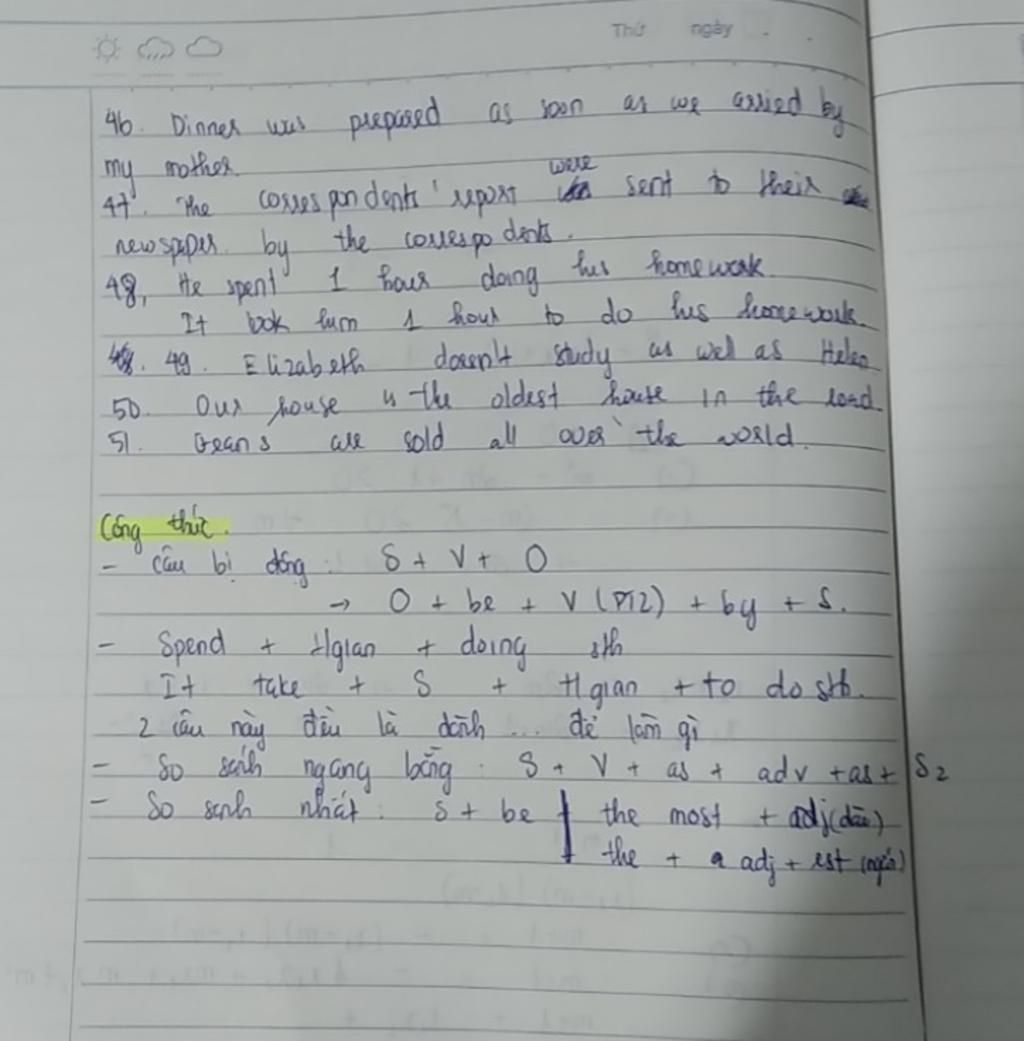 Thứ ngày
46. Dinner was prepared as soon as we arried by
my mother.
47. The correspondents' report were sent to their
newspaper by the correspodents.
48, He spent 1 hour doing his homework.
It took him 1 hour to do his homework.
49. Elizabeth doesn't study as well as Helen
50. Our house is the oldest house in the road.
51. Jeans are sold all over the world.
Công thức.
- Câu bị động: S + V + O
→ O + be + V (PI2) + by + S.
- Spend + tgian + doing sth
It take + S + tgian + to do sth.
2 câu này đều là dành ... để làm gì
- So sánh ngang bằng: S + V + as + adv + as + S2
- So sánh nhất: S + be the most + adj (dài)
the + adj + est (ngắn)